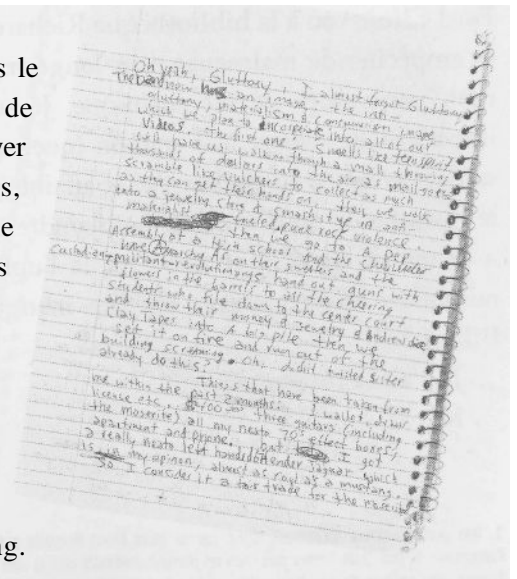 s le
de
ver
s,
e
s
g.
Oh yeah, Gluttony, I almost forgot Gluttony
The band now has an image: the Anti-
gluttony, materialism & consumerism image
which we plan to incorporate into all of our
Videos. The first one = Smells like teen spirit
will have us walking through a mall throwing
thousands of dollars into the air as mallgoers
scramble like vulchers to collect as much
as they can get their hands on, then we walk
into a jewelry store & smash it up in anti-
materialist fueled punk rock violence.
then we go to A pep
Assembly at a high school And the cheerleaders
have Anarchy A's on their sweaters and the
Custodian-militant-revolutionarys hand out guns with
flowers in the barrels to all the cheering
students who file down to the center court
and throw their money & jewelry & Andrew dice
Clay Tapes into A big pile then we
set it on fire and run out of the
building screaming. Oh, didnt twisted Sister
already do this?
Things that have been taken from
me within the past 2 months: 1 wallet, driver
license etc. $400 three guitars (including
the moserite) all my neato 70s effect boxes,
apartment and phone. but I got
a really neato left handed fender Jaguar which
is in my apinon, almost as cool as a mustang.
So I consider it a fair trade for the